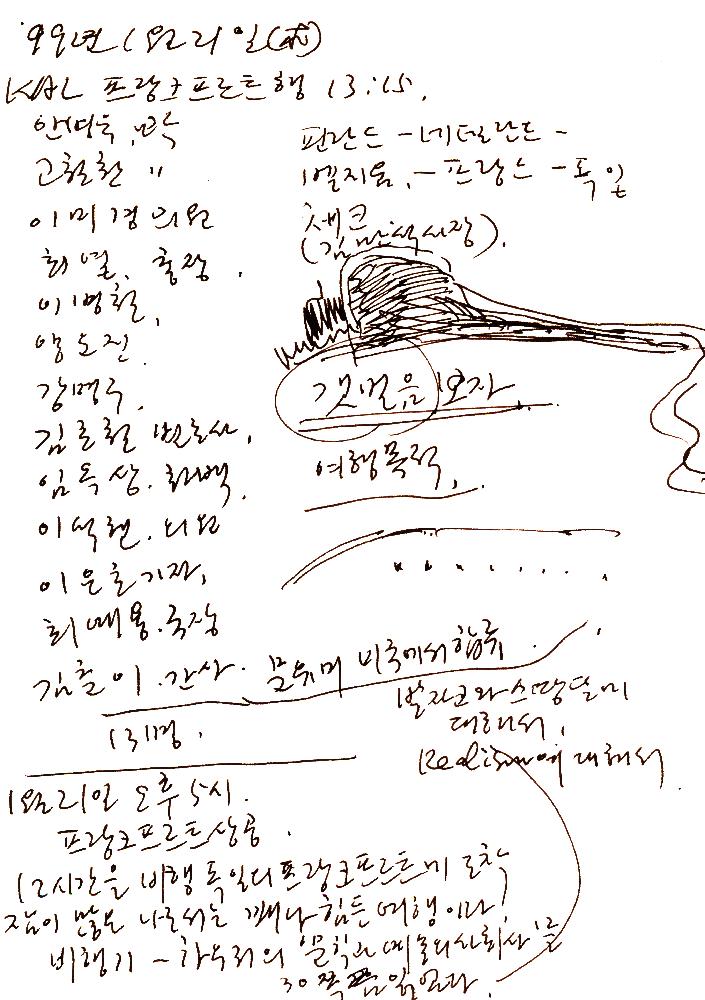 '99년 1월 21일(木)
KAL 프랑크프르트행 13:15.
고철환 〃
이미경 의원
최열. 총장.
이병철,
양도전.
강명구.
김호철 변호사,
임옥상. 화백.
이석현. 의원
이은호 기자,
최배용. 국장
김춘이. 간사. 미국에서 합류.
13명.
핀란드 - 네델란드 -
벨지움. - 프랑스 - 독일
체코
사장).
갯벌음 모자
여행목적.
발자크와 스땅달에
대해서.
Realism에 대해서
1월 21일 오후 5시.
프랑크프르트 상공.
12시간을 비행 독일의 프랑크프르트에 도착
잠이 많은 나로서는 꽤나 힘든 여행이다
비행기 - 하우저의 문학과 예술의 사회사를
30쪽쯤 읽었다.